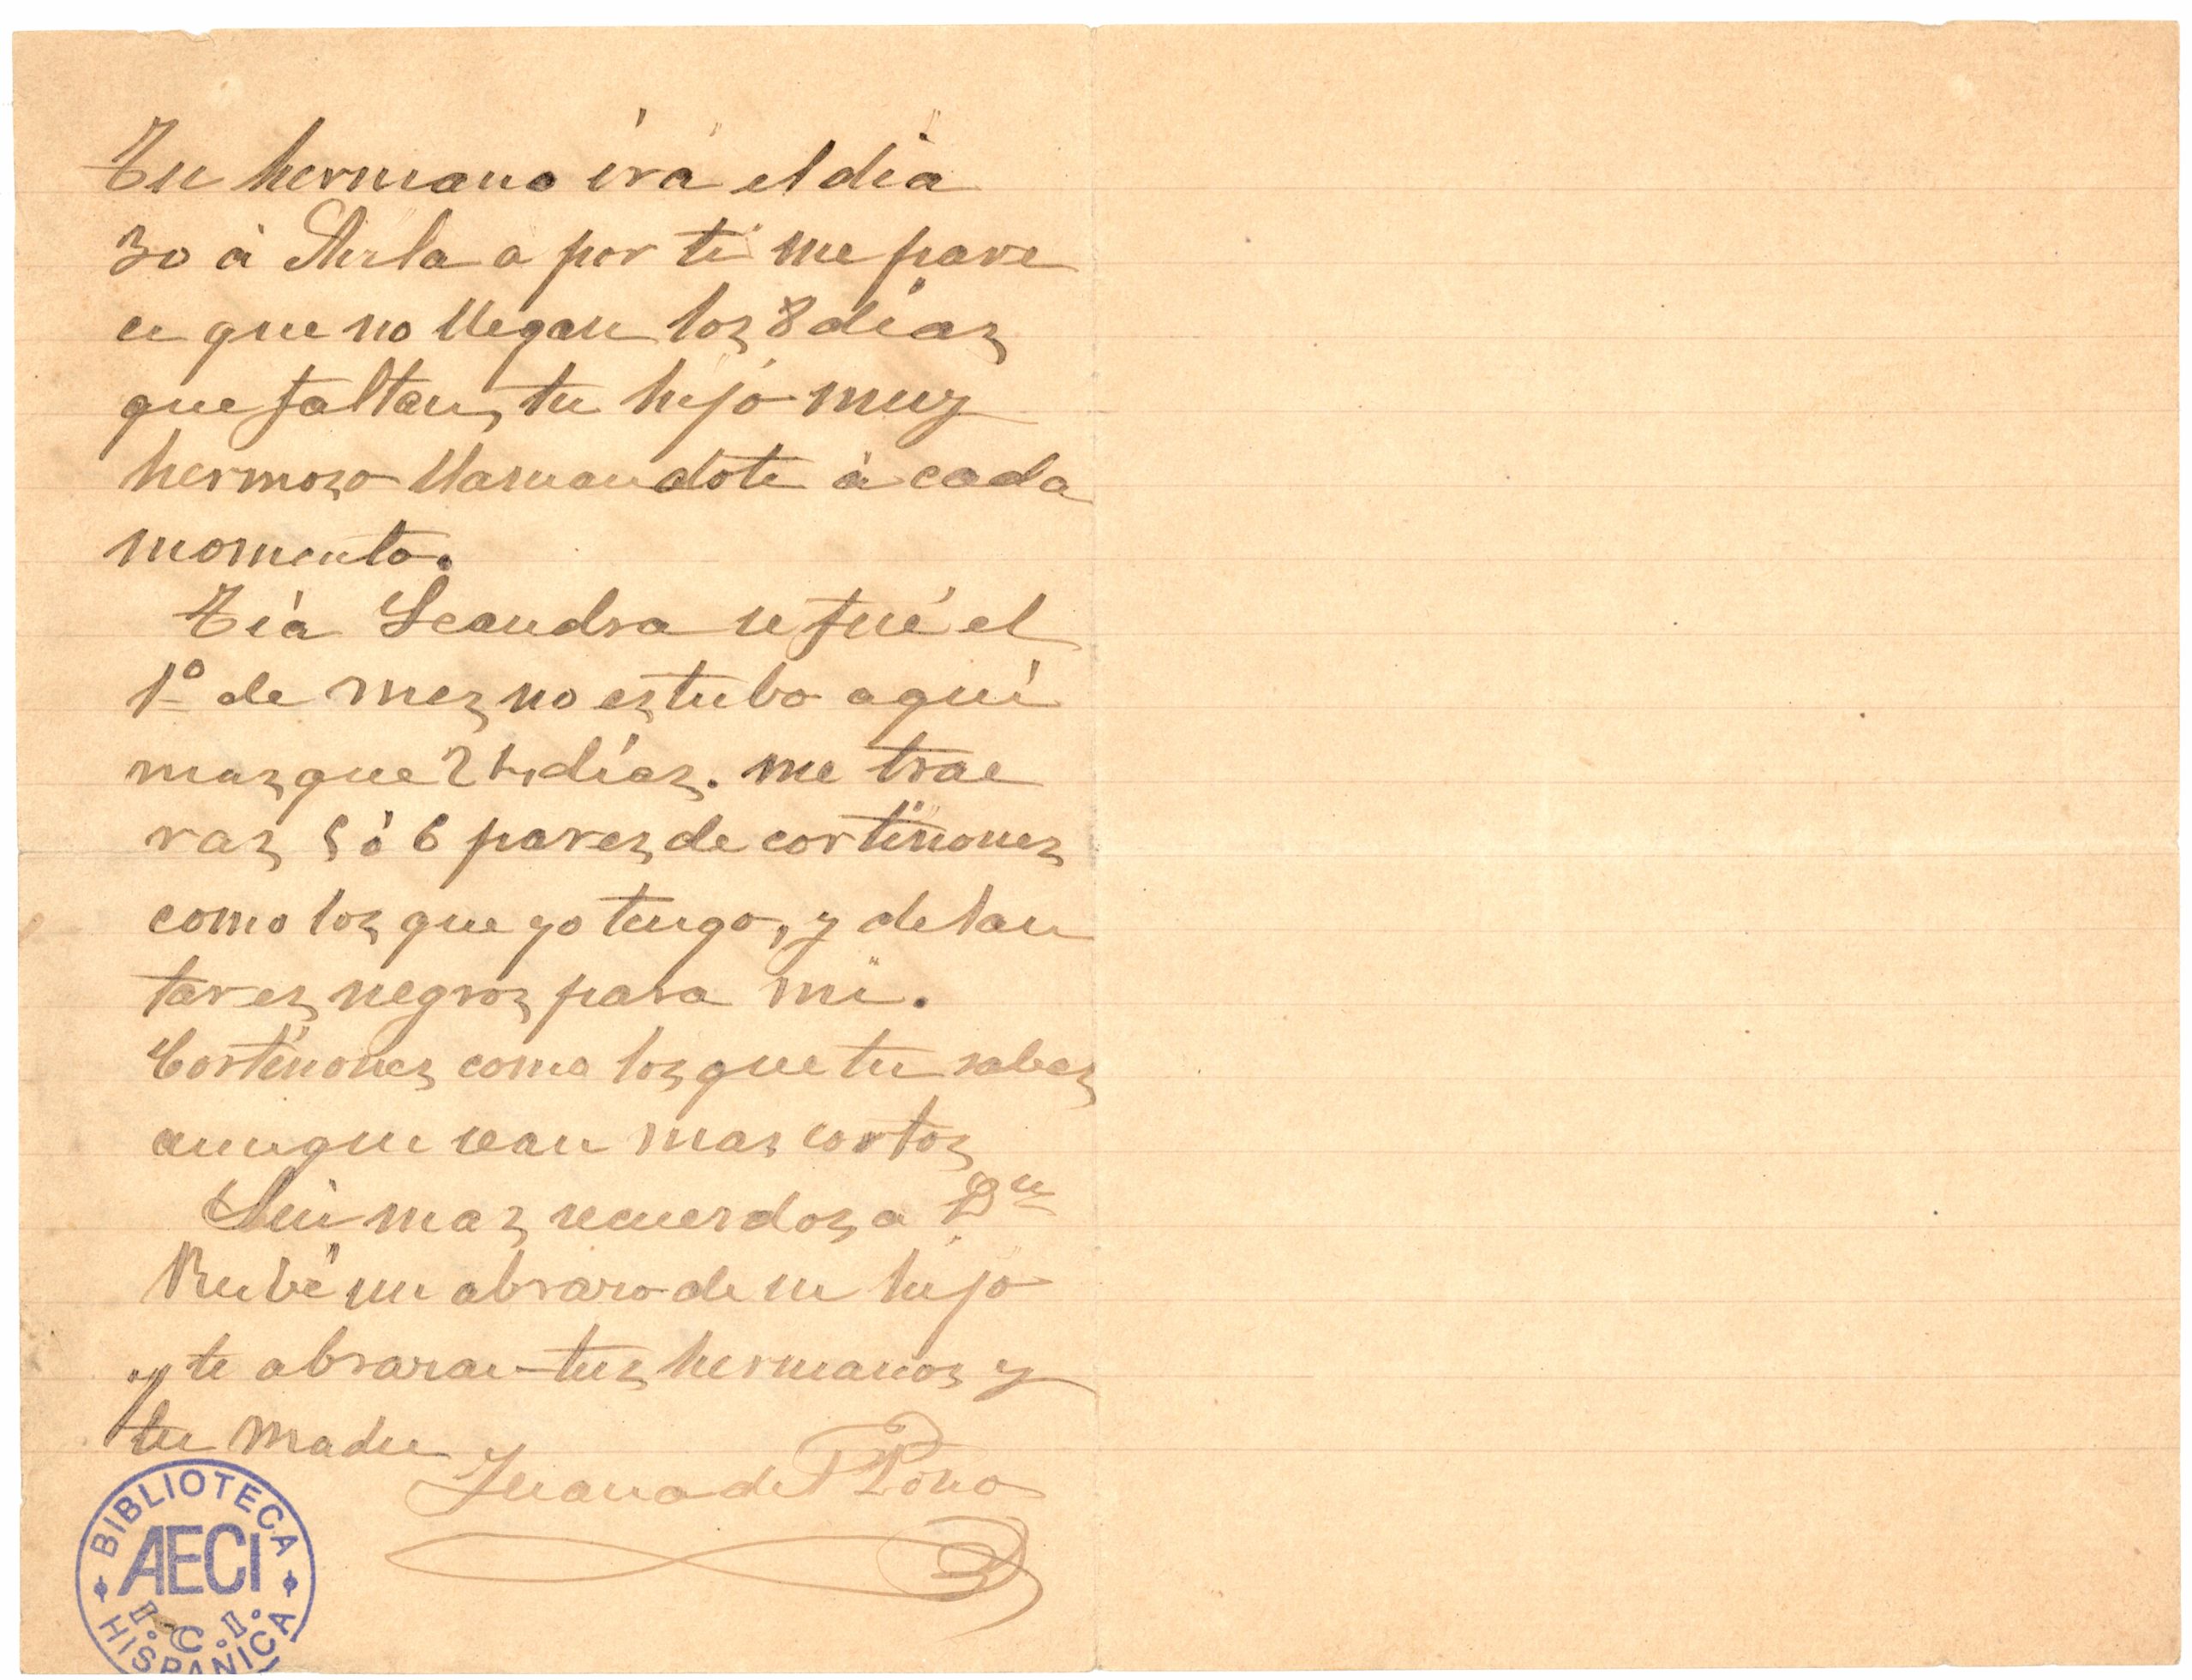 Tu hermano irá el día
30 á Avila a por ti me pare
ce que no llegan los 8 dias
que faltan, tu hijo muy
hermoso llamandote á cada
momento.
Tia Leandra se fué el
1º de mes no estubo aqui
mas que 24 dias. me trae
ras 5 ó 6 pares de cortinones
como los que yo tengo, y delan
tares negros para mi.
Cortinones como los que tu sabes
aunque sean mas cortos
Sin mas recuerdos a Dn
Rubé un abrazo de su hijo
y te abrazan tus hermanos y
tu madre
Juana del Pozo
BIBLIOTECA
AECI
I.C.I.
HISPANICA